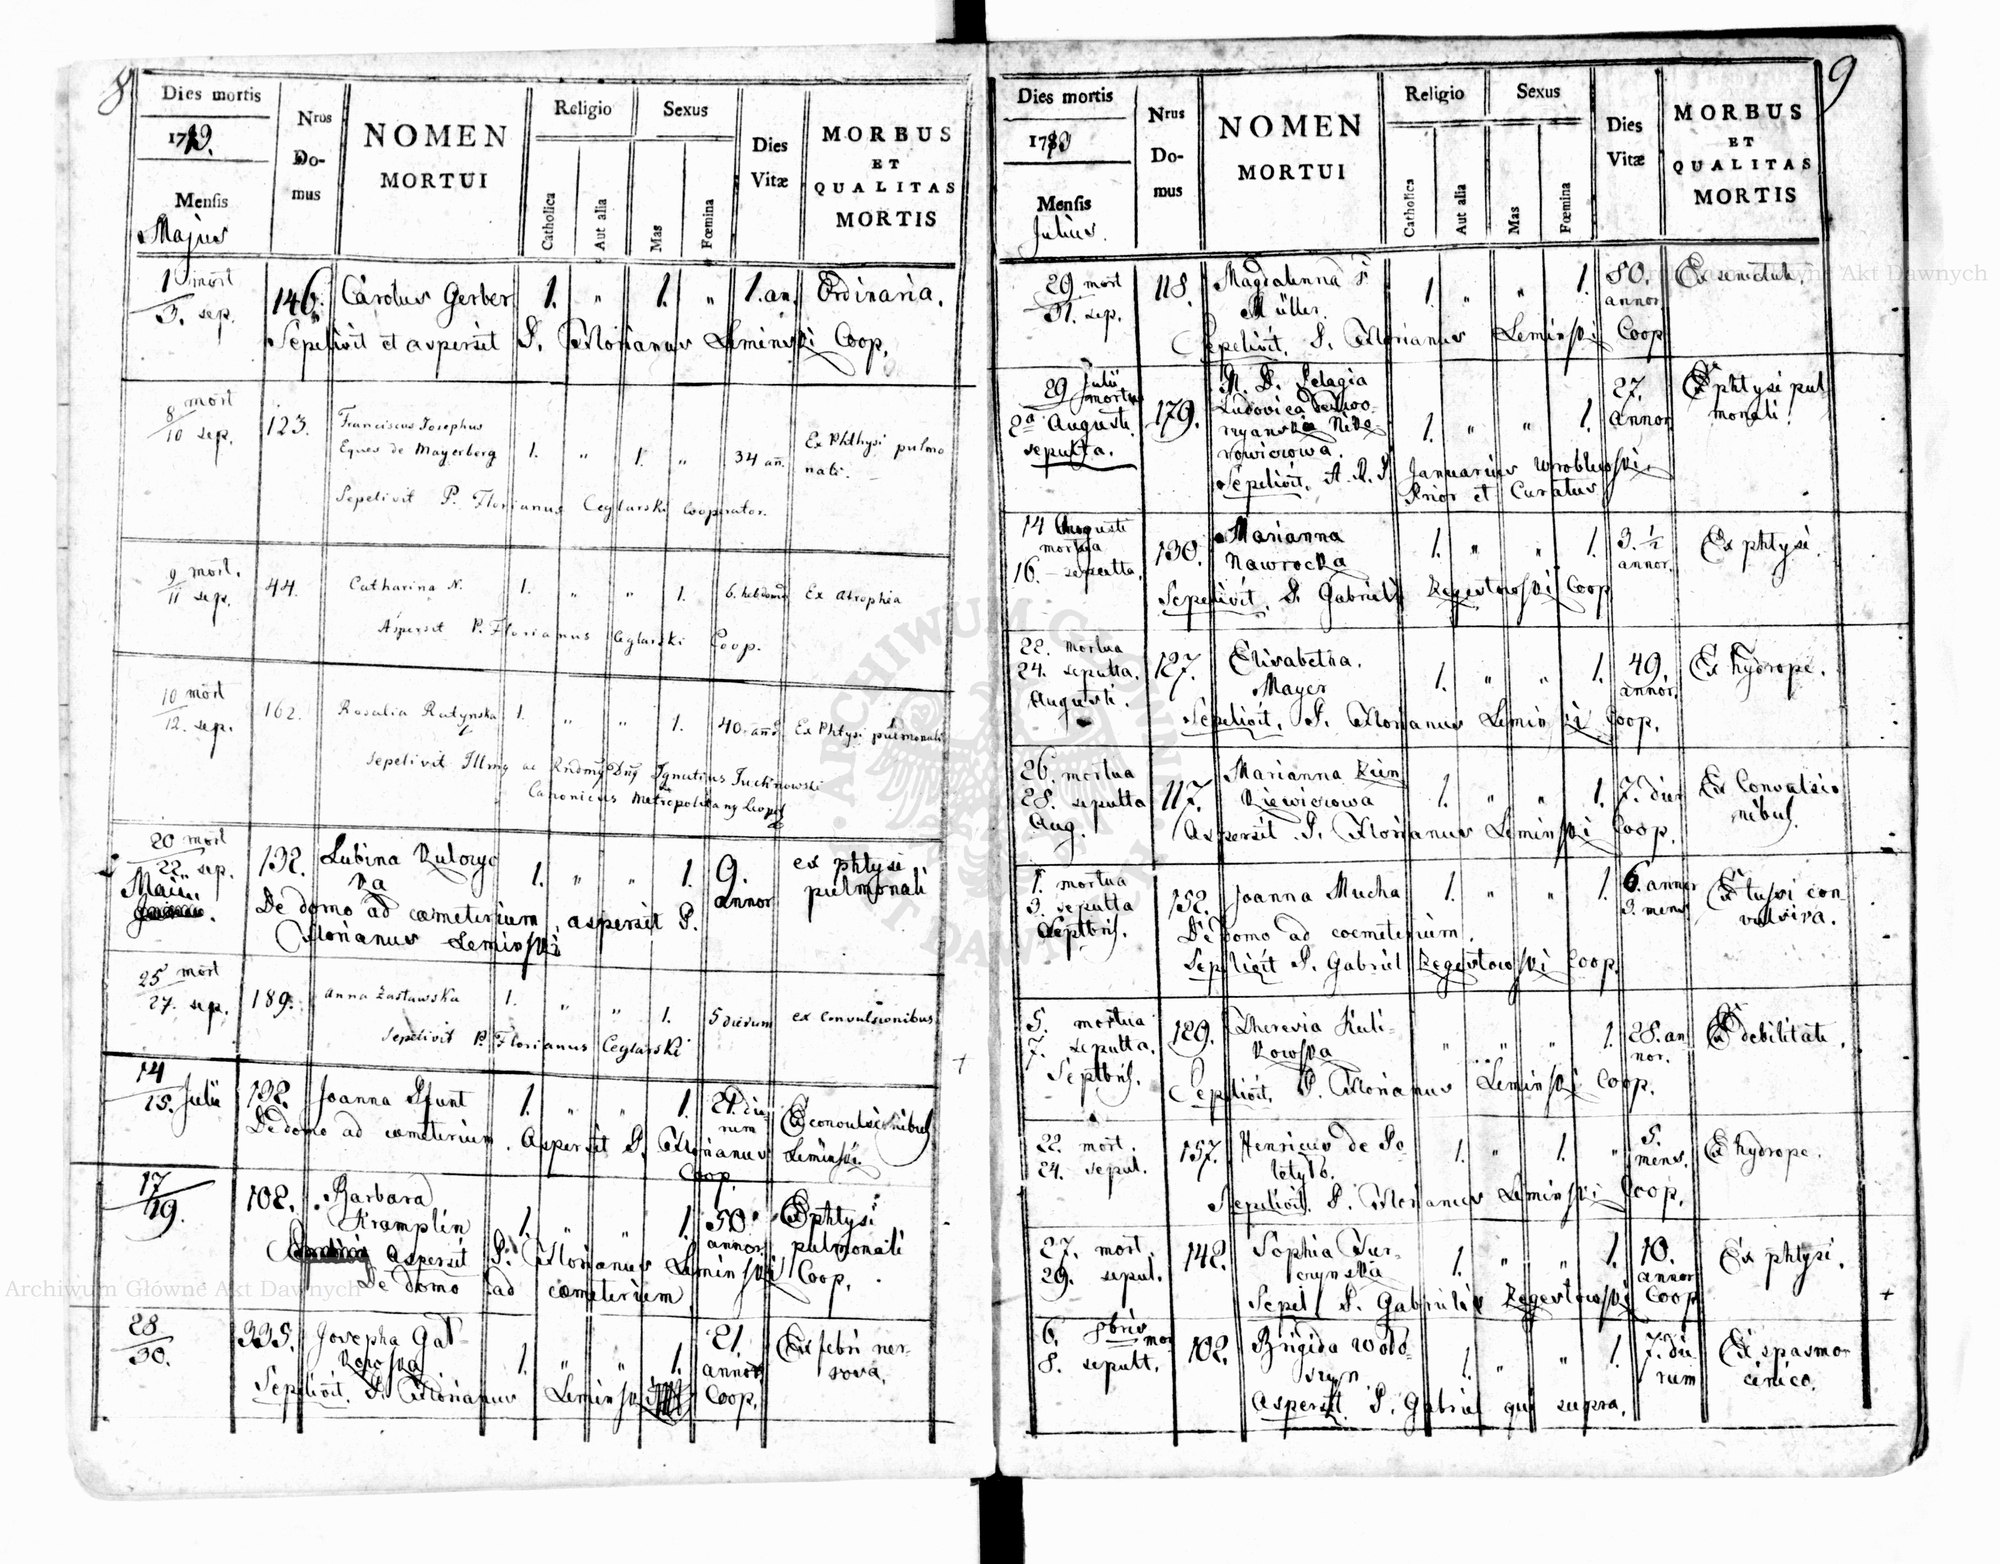 8
Dies mortis
Nrus Domus
NOMEN MORTUI
Religio
Sexus
Dies Vitæ
MORBUS ET QUALITAS MORTIS
Mensis
Majus
Catholica
Aut alia
Mas
Fœmina
1 mort
3. sep.
146.
Carolus Gerber
1. " 1. "
1. an.
Ordinaria.
Sepelivit et aspersit P. Florianus Leminski Coop.
8 mort
10 sep.
123.
Franciscus Josephus
Eques de Mayerberg
1. " 1. "
34 añ.
Ex Phthysi pulmo
nali.
Sepelivit P. Florianus Ceglarski Cooperator.
9 mort.
11 sep.
44.
Catharina N.
1. " " 1.
6. hebdom
Ex Atrophia
Aspersit P. Florianus Ceglarski Coop.
10 mort
12. sep.
162.
Rosalia Rutynska
1. " " 1.
40. añ
Ex Phtysi pulmonali
Sepelivit Illmg ac Rndmg Dng Ignatius Tuchnowski
Canonicus Metropolitang Leopol
20 mort
22. sep.
Maii.
132.
Lubina
1. " " 1.
9.
annor
ex phtysi
pulmonali
De domo ad cœmeterium, aspersit P.
Florianus Leminski
25 mort
27. sep.
189.
Anna Zastawska
1. " " 1.
5 dierum
ex Convulsionibus
Sepelivit P. Florianus Ceglarski
14
15. Julii
132.
Joanna Pfunt
1. " " 1.
21. die
rum
Ex convulsionibus
De domo ad cœmeterium. Aspersit P. Florianus Leminski
Coop.
17
19.
102.
Barbara
Kramplin
1. " " 1.
50.
annor
Ex phtysi
pulmonali
aspersit P. Florianus Leminski Coop.
De domo ad cœmeterium
28
30.
335.
Josepha Gat-
kowska
1. " " 1.
21.
annor
Ex febri ner-
vosa.
Sepelivit. P. Florianus Leminski Coop.
9
Dies mortis
Nrus Domus
NOMEN MORTUI
Religio
Sexus
Dies Vitæ
MORBUS ET QUALITAS MORTIS
Mensis
Julius.
Catholica
Aut alia
Mas
Fœmina
29 mort
31. sep.
118.
Magdalenna
Müller.
1. " " 1.
80.
annor
Ex senectute.
Sepelivit. P. Florianus Leminski Coop
29 Julii
mortua
2a Augusti.
sepulta.
179.
Pelagia
Ludovica
1. " " 1.
27.
Annor
Ex phtysi pul
monali.
Sepelivit. A. R. P. Januarius Wroblewski
Prior et Curatus
14 Augusti
mortua
16. sepulta.
130.
Marianna
Nawrocka
1. " " 1.
3. 1/2
annor.
Ex phtysi.
Sepelivit. P. Gabriel Zegestowski Coop
22. mortua
24. sepulta.
Augusti.
127.
Elisabetha.
Mayer
1. " " 1.
49.
annor.
Ex hydrope.
Sepelivit. P. Florianus Leminski Coop.
26. mortua
28. sepulta
Aug.
117.
Marianna Zien
kiewiczowa
1. " " 1.
7. dier
Ex Convulsio
nibus.
Aspersit P. Florianus Leminski Coop.
1. mortua
3. sepulta
Septbris.
152.
Joanna Mucha
1. " " 1.
6. annor
3. mens
Ex tussi con-
vulsiva.
De domo ad coemeterium.
Sepelivit P. Gabriel Zegestowski Coop.
5. mortua
7. sepulta.
Septbris.
129.
Theresia Kuli-
kowska
" " " 1.
28. an
nor.
Ex debilitate.
Sepelivit. P. Florianus Leminski Coop.
22. mort.
24. sepul.
157.
Henricus de Po-
letylo.
1. " 1. "
5.
mens.
Ex hydrope.
Sepelivit. P. Florianus Leminski Coop.
27. mort.
29. sepul.
142.
Sophia Tur-
czynska
1. " " 1.
10.
annor
Ex phtysi.
Sepel P. Gabriel Zegestowski Coop
6. 8bris mor
8. sepult.
102.
Brigida
1. " " 1.
7. die
rum
Ex spasmo
cinico.
Aspersit. P. Gabriel qui supra.
ARCHIWUM GŁÓWNE AKT DAWNYCH
Archiwum Główne Akt Dawnych
Archiwum Główne Akt Dawnych